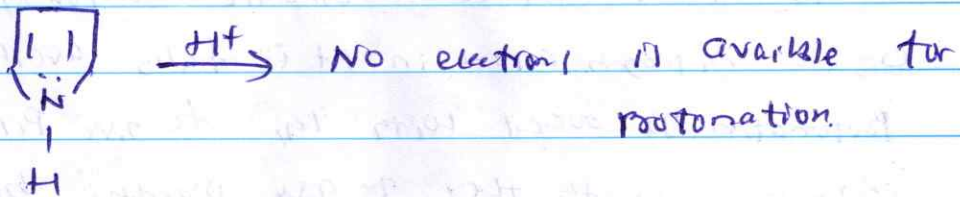 H+ No electrons is available for
N̈ protonation.
H